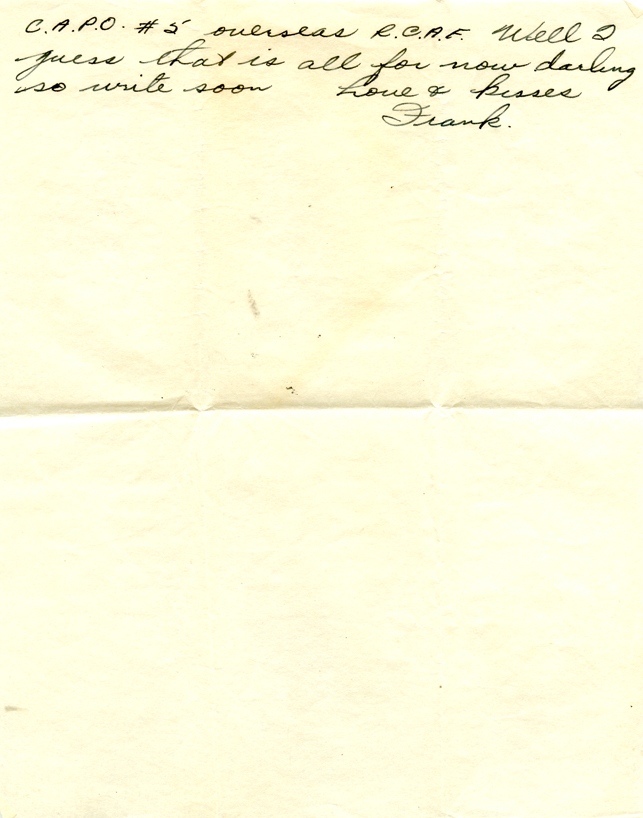 C.A.P.O. #5 overseas R.C.A.F. Well I
guess that is all for now darling
so write soon Love & kisses
Frank.